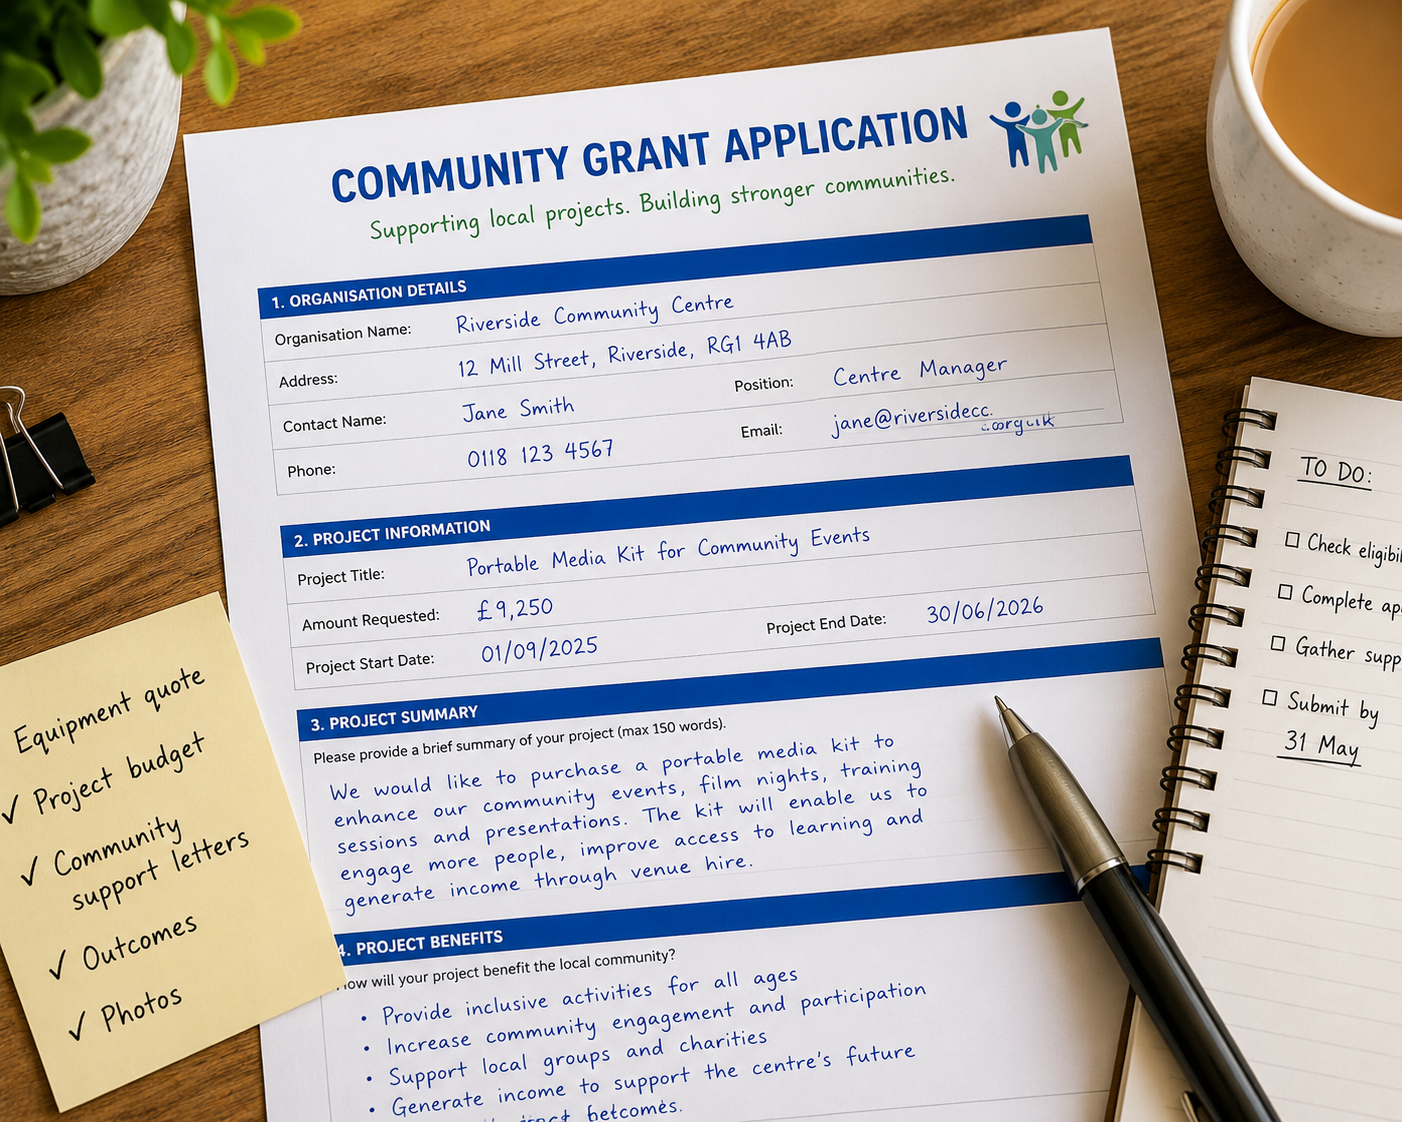 COMMUNITY GRANT APPLICATION
Supporting local projects. Building stronger communities.
1. ORGANISATION DETAILS
Organisation Name: Riverside Community Centre
Address: 12 Mill Street, Riverside, RG1 4AB
Contact Name: Jane Smith Position: Centre Manager
Phone: 0118 123 4567 Email: jane@riversidecc.
2. PROJECT INFORMATION
Project Title: Portable Media Kit for Community Events
Amount Requested: £9,250
Project Start Date: 01/09/2025 Project End Date: 30/06/2026
3. PROJECT SUMMARY
Please provide a brief summary of your project (max 150 words).
We would like to purchase a portable media kit to
enhance our community events, film nights, training
sessions and presentations. The kit will enable us to
engage more people, improve access to learning and
generate income through venue hire.
4. PROJECT BENEFITS
How will your project benefit the local community?
• Provide inclusive activities for all ages
• Increase community engagement and participation
• Support local groups and charities
• Generate income to support the centre's future
Equipment quote
✓ Project budget
✓ Community
support letters
✓ Outcomes
✓ Photos
TO DO:
☐ Check
☐ Complete
☐ Gather
☐ Submit by
31 May